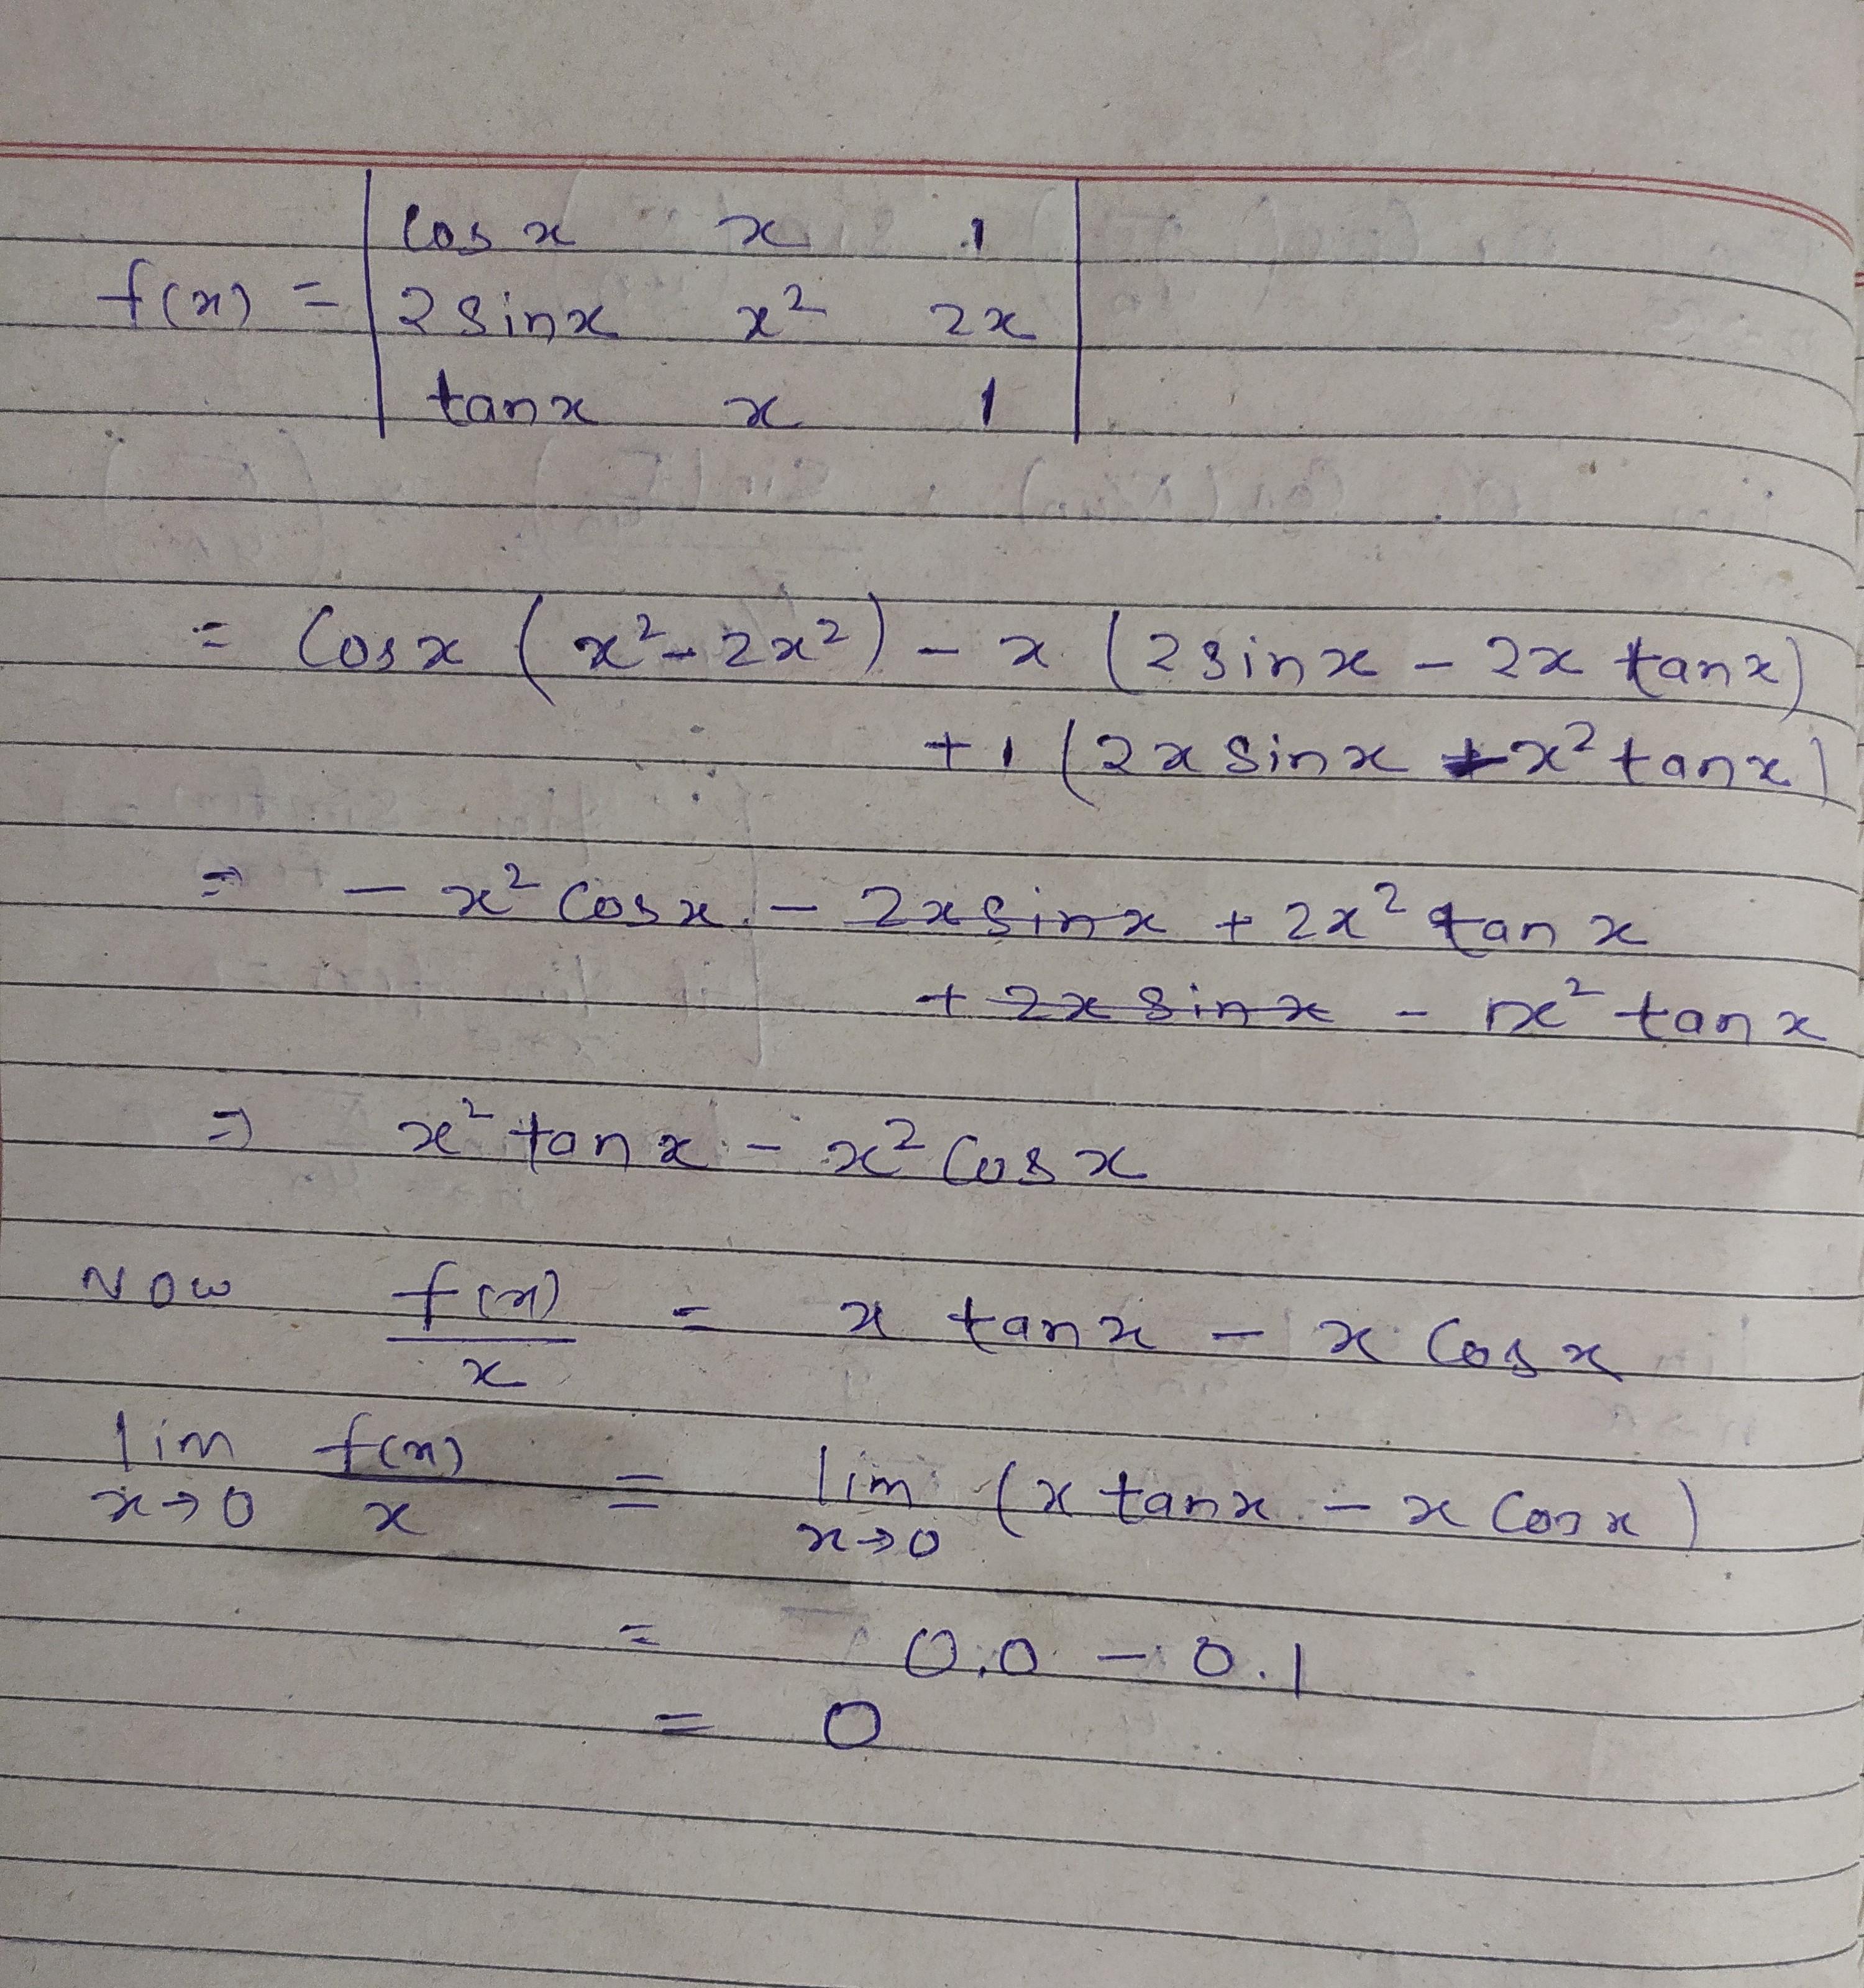 cos x x 1
f(x) = 2 sin x x² 2x
tan x x 1
= Cos x ( x² - 2x² ) - x ( 2 sin x - 2x tan x )
+ 1 ( 2x sin x - x² tan x )
⇒ - x² cos x - 2x sin x + 2x² tan x
+ 2x sin x - x² tan x
⇒ x² tan x - x² cos x
NOW f(x)/x = x tan x - x cos x
lim x→0 f(x)/x = lim x→0 (x tan x - x cos x)
= 0.0 - 0.1
= 0